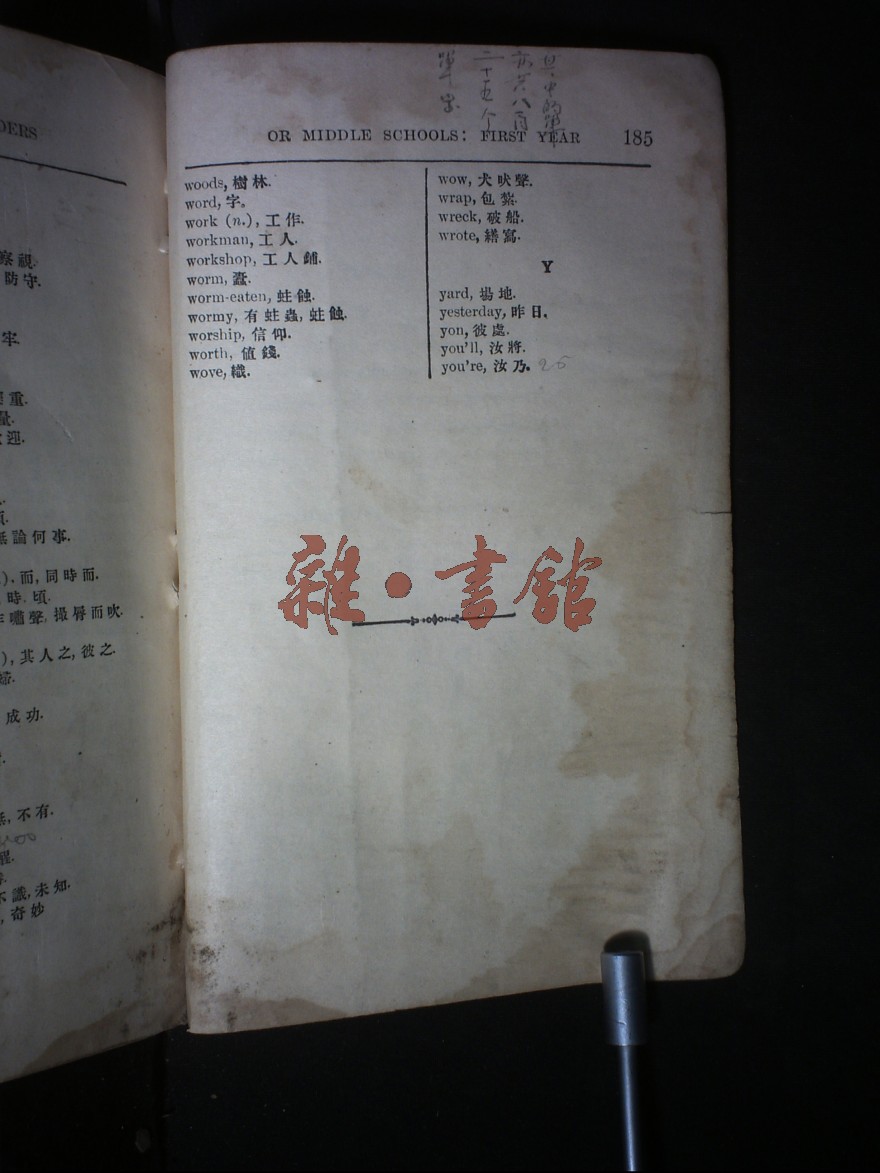 DERS
察視.
防守.
牢.
重.
量.
迎.
論何事.
), 而, 同時而.
時, 頃.
嘯聲, 撮脣而吹.
), 其人之, 彼之.
成功.
不有.
醒.
不識, 未知.
, 奇妙
二十五个
OR MIDDLE SCHOOLS: FIRST YEAR 185
woods, 樹林.
word, 字。
work (n.), 工作.
workman, 工人.
workshop, 工人鋪.
worm, 蠹.
worm-eaten, 蛀蝕.
wormy, 有蛀蟲, 蛀蝕.
worship, 信仰.
worth, 値錢.
wove, 織.
wow, 犬吠聲.
wrap, 包紮.
wreck, 破船.
wrote, 繕寫.
Y
yard, 場地.
yesterday, 昨日.
yon, 彼處.
you'll, 汝將.
you're, 汝乃. 25
雜·書館